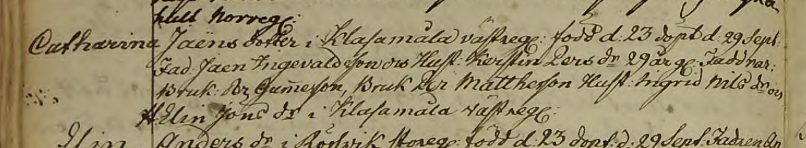 hust Norreg:
Catharina Jaëns dotter i Klasamåla västreg: född d: 23 döpt d. 29 Sept
Fad: Jaen Ingevaldsson ors Hust: Kerstin Pers dr 29 år g: Faddrar:
Bruk: Pr Gumeson, Bruk Per Mattheson Hust: Ingrid Nils dr ors
H: Elin Jons dr i Klasamåla västreg:
Elin Anders dr i Rödvik Noreg: född d: 23 dopt: d: 29 Sept: Fadren An